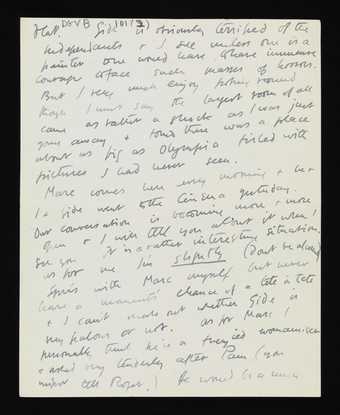 that. Side is obviously terrified of the
Independants & I see unless one is a
painter one would have to have immense
courage to face such masses of horrors.
But I very much enjoy poking round
though I must say the largest room of all
came as rather a shock as I was just
going away & found there was a place
about as big as Olympia filled with
pictures I had never seen.
Marc comes here every morning & he &
I & Side went to the Cinema yesterday.
Our conversation is becoming more & more
open & I will tell you about it when I
see you it is a rather interesting situation.
as for me I'm slightly (Don't be alarmed)
with Marc myself but never
have a moments chance of a tête à tête
& I can't make out whether Side is
very jealous or not. as for Marc I
personally think he is a terrified
& asked very tenderly after Pam (you
might tell Roger.) He would be a much